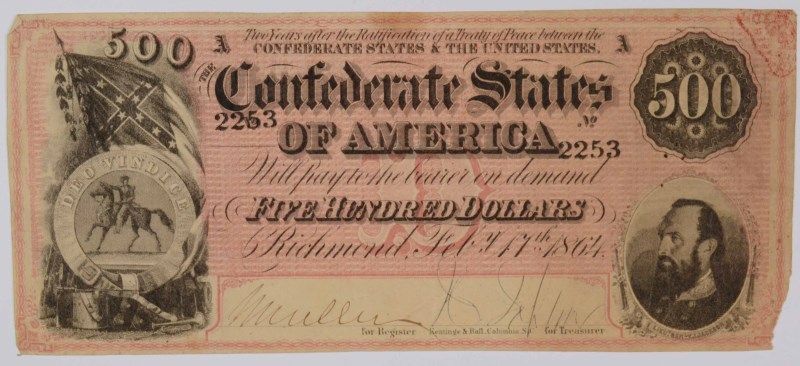 500 A Two Years after the Ratification of a Treaty of Peace between the
CONFEDERATE STATES & THE UNITED STATES. A
THE Confederate States 500
2253 OF AMERICA No 2253
DEO VINDICE
Will pay to the bearer on demand
FIVE HUNDRED DOLLARS
Richmond, Feby. 17th 1864.
for Register Keatinge & Ball, Columbia S.C. for Treasurer